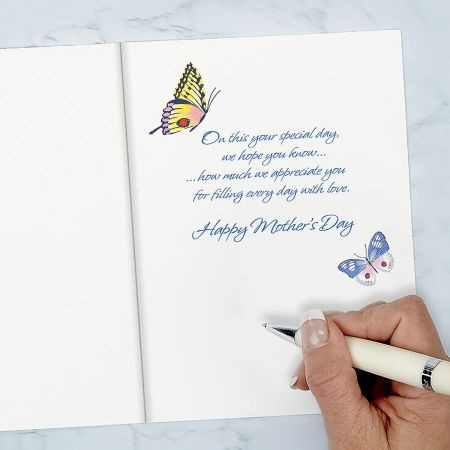 On this your special day,
we hope you know...
...how much we appreciate you
for filling every day with love.
Happy Mother's Day